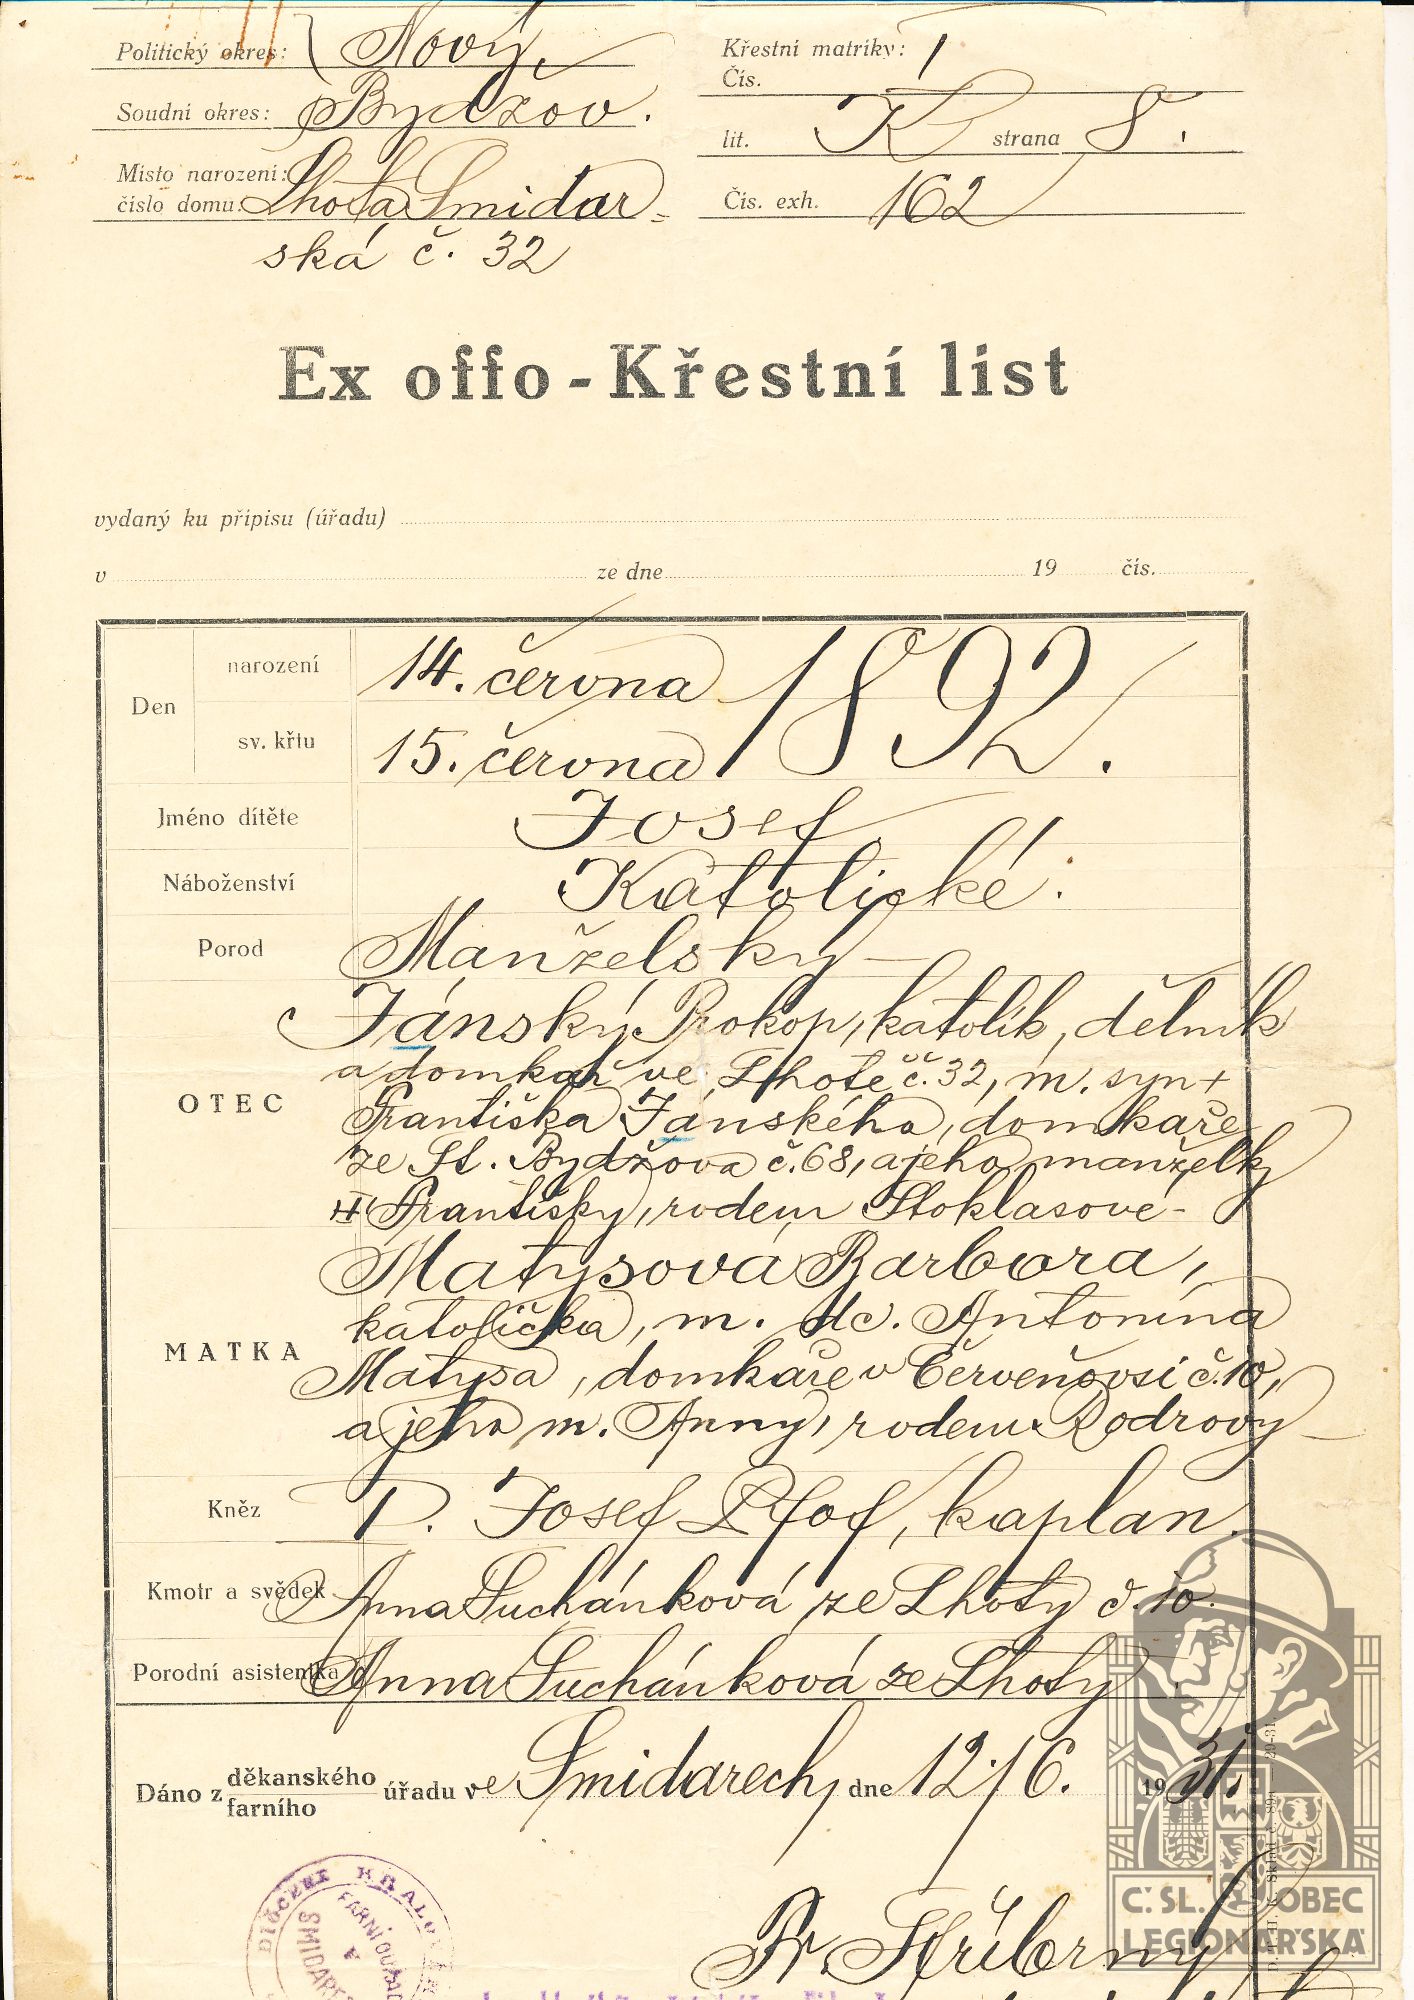 Politický okres: Nový
Soudní okres: Bydžov.
Místo narození:
číslo domu: Lhota Smidar-
ská č. 32
Křestní matriky: 1
Čís.
lit. K strana 8.
Čís. exh. 162
Ex offo - Křestní list
vydaný ku přípisu (úřadu)
v ze dne 19 čís.
Den narození 14. června 1892.
sv. křtu 15. června
Jméno dítěte Josef
Náboženství Katolické.
Porod Manželský
OTEC Jánský Prokop, katolík, dělník
a domkař ve Lhotě č. 32, m. syn +
Františka Jánského, domkaře
ze St. Bydžova č. 68, a jeho manželky
Františky, rodem Stoklasové-
MATKA Matysová Barbora,
katolička, m. dc. Antonína
Matysa, domkáře v Červeňovsi č. 10,
a jeho m. Anny, rodem Rodrovy
Kněz P. Josef Pfof, kaplan.
Kmotr a svědek Anna Suchánková ze Lhoty č. 10.
Porodní asistentka Anna Suchánková ze Lhoty
Dáno z děkanského farního úřadu ve Smidarech, dne 12./6. 1931.
Fr. Stříbrný
DIÖCESE
FARNÍ OUŘAD
V
SMIDARE
Č.SL. OBEC
LEGIONÁŘSKÁ